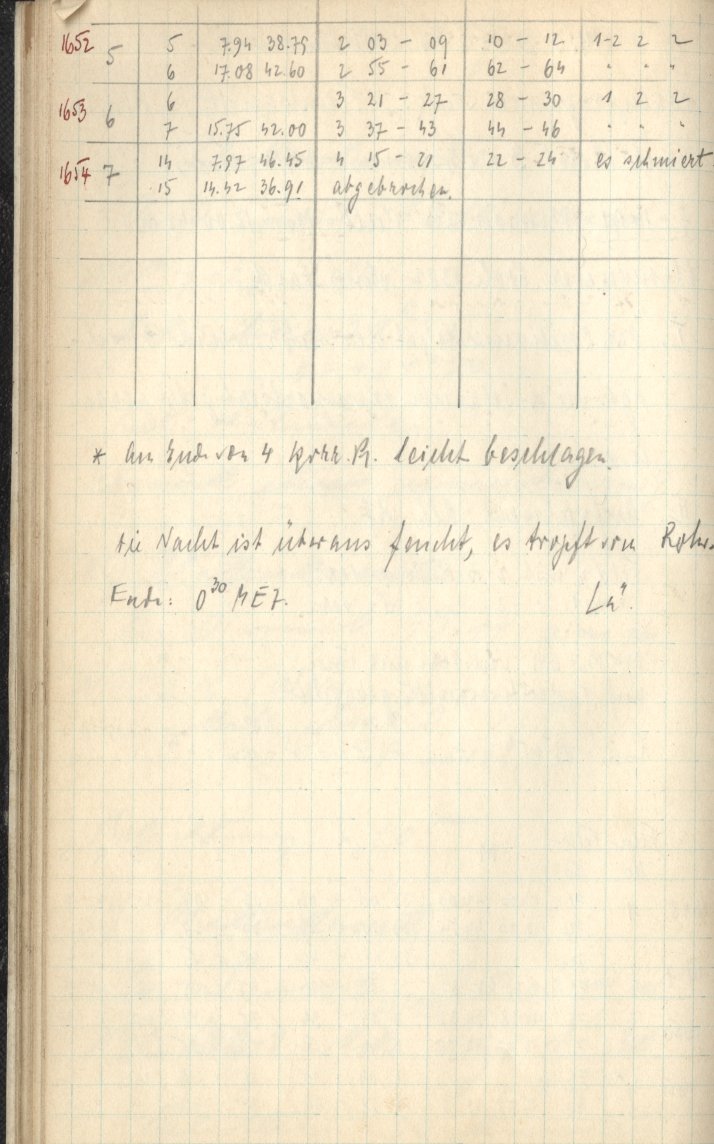 1652 5 5 7.94 38.75 2 03 - 09 10 - 12 1-2 2 2
6 17.08 42.60 2 55 - 61 62 - 64 " " "
1653 6 6 3 21 - 27 28 - 30 1 2 2
7 15.75 42.00 3 37 - 43 44 - 46 " " "
1654 7 14 7.87 46.45 4 15 - 21 22 - 24 es schmiert
15 14.42 36.91 abgebrochen.
* Am Ende von 4 Korr. Pl. leicht beschlagen.
die Nacht ist überaus feucht, es tropft vom Rohr.
Ende: 0 30 MEZ. Lä".